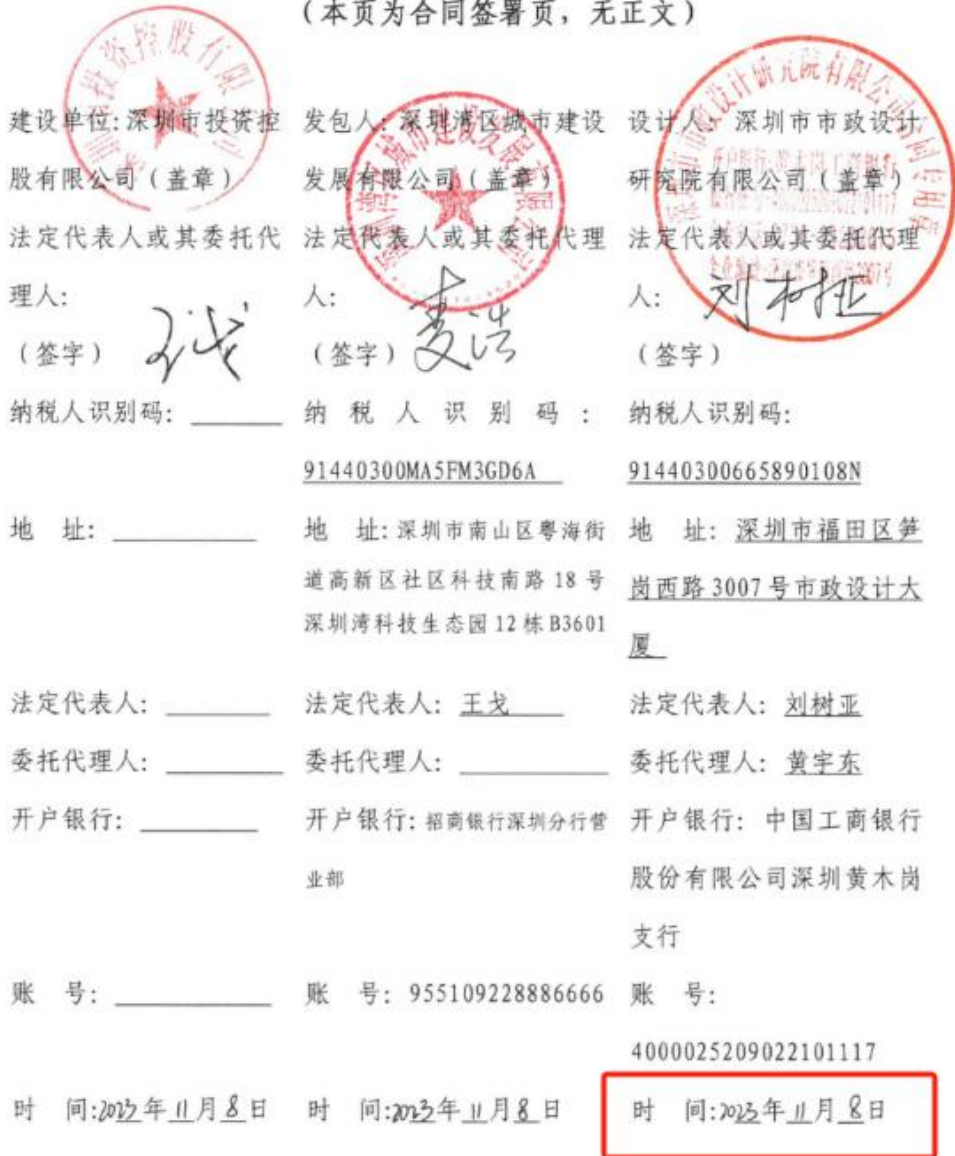 （本页为合同签署页，无正文）
建设单位:深圳市投资控
股有限公司（盖章）
法定代表人或其委托代
理人:
（签字）
纳税人识别码:
地 址:
法定代表人:
委托代理人:
开户银行:
账 号:
时 间:2023年11月8日
发包人:深圳湾区城市建设
发展有限公司（盖章）
法定代表人或其委托代理
人:
（签字）
纳税人识别码:
91440300MA5FM3GD6A
地 址:深圳市南山区粤海街
道高新区社区科技南路 18 号
深圳湾科技生态园 12 栋 B3601
法定代表人: 王戈
委托代理人:
开户银行: 招商银行深圳分行营
业部
账 号: 955109228886666
时 间:2023年11月8日
设计人: 深圳市市政设计
研究院有限公司（盖章）
法定代表人或其委托代理
人: 刘树亚
（签字）
纳税人识别码:
91440300665890108N
地 址: 深圳市福田区笋
岗西路 3007 号市政设计大
厦
法定代表人: 刘树亚
委托代理人: 黄宇东
开户银行: 中国工商银行
股份有限公司深圳黄木岗
支行
账 号:
4000025209022101117
时 间:2023年11月8日